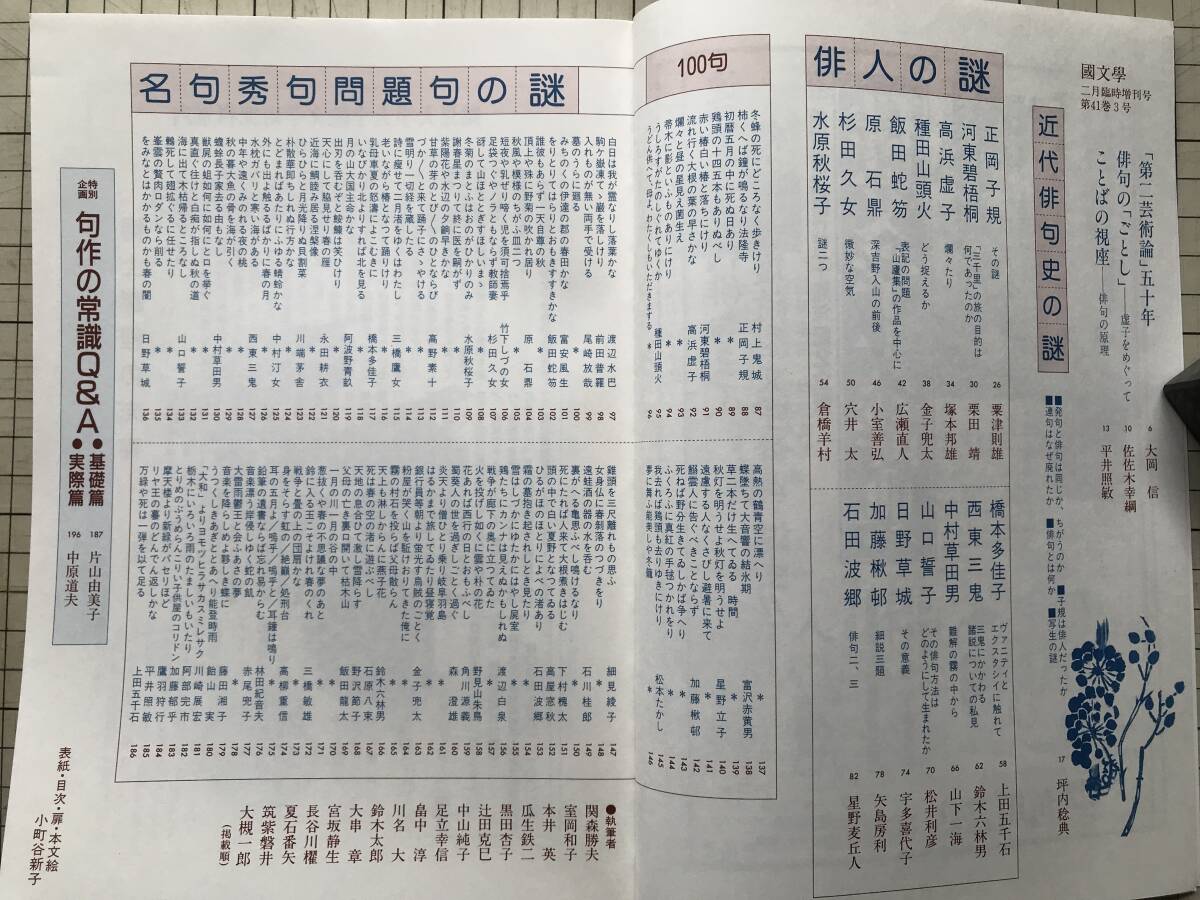 國文學
二月臨時増刊号
第41巻3号
「第二芸術論」五十年 6 大岡 信
俳句の「ごとし」──虚子をめぐって 10 佐佐木幸綱
ことばの視座──俳句の原理 13 平井照敏
近代俳句史の謎
■発句と俳句は同じか、ちがうのか ■子規は俳人だったか
■連句はなぜ廃れたか ■俳句とは何か ■写生の謎
17 坪内稔典
俳人の謎
正岡子規 その謎 26 粟津則雄
河東碧梧桐 「三千里」の旅の目的は何であったのか 30 栗田 靖
高浜虚子 爛々たり 34 塚本邦雄
種田山頭火 どう捉えるか 38 金子兜太
飯田蛇笏 表記の問題 「山廬集」の作品を中心に 42 広瀬直人
原 石鼎 深吉野入山の前後 46 小室善弘
杉田久女 微妙な空気 50 穴井 太
水原秋桜子 謎二つ 54 倉橋羊村
橋本多佳子 ヴァニティとエクスタシイに触れて 58 上田五千石
西東三鬼 三鬼にかかわる諸説についての私見 62 鈴木六林男
中村草田男 難解の霧の中から 66 山下一海
山口誓子 その俳句方法はどのようにして生まれたか 70 松井利彦
日野草城 その意義 74 宇多喜代子
加藤楸邨 細説三題 78 矢島房利
石田波郷 俳句二、三 82 星野麦丘人
名句秀句問題句の謎
100句
冬蜂の死にどころなく歩きけり 村上鬼城 87
柿くへば鐘が鳴るなり法隆寺 正岡子規 88
初暦五月の中に死ぬ日あり * 89
鶏頭の十四五本もありぬべし * 90
赤い椿白い椿と落ちにけり 河東碧梧桐 91
流れ行く大根の葉の早さかな 高浜虚子 92
爛々と昼の星見え菌生え * 93
帚木に影といふものありにけり * 94
うしろすがたのしぐれてゆくか 種田山頭火 95
うどん供へて、母よ、わたくしもいただきまする * 96
白日は我が霊なりし落葉かな 渡辺水巴 97
駒ケ嶽凍てゝ巖を落しけり 前田普羅 98
入れものが無い両手で受ける 尾崎放哉 99
墓のうらに廻る * 100
みちのくの伊達の郡の春田かな 富安風生 101
をりとりてはらりとおもきすすきかな 飯田蛇笏 102
誰彼もあらず一天自尊の秋 * 103
頂上や殊に野菊の吹かれ居り 原 石鼎 104
秋風や模様のちがふ皿二つ * 105
短夜や乳ぜり啼く児を須可捨焉乎 竹下しづの女 106
足袋つぐやノラともならず教師妻 杉田久女 107
谺して山ほととぎすほしいまゝ * 108
冬菊のまとふはおのがひかりのみ 水原秋桜子 109
謝春星まつりて終に医を嗣がず * 110
紫陽花や水辺の夕餉早きかな * 111
甘草の芽のとびとびのひとならび 高野素十 112
づかづかと来て踊子にささやける * 113
雪明り一切経を蔵したる * 114
詩に痩せて二月渚をゆくはわたし 三橋鷹女 115
老いながら椿となつて踊りけり * 116
乳母車夏の怒濤によこむきに 橋本多佳子 117
いなびかり北よりすれば北を見る * 118
月の山大国主命かな 阿波野青畝 119
出刃を呑むぞと鮟鱇は笑ひけり * 120
天心にして脇見せり春の雁 永田耕衣 121
近海に鯛睦み居る涅槃像 * 122
ひらひらと月光降りぬ貝割菜 川端茅舎 123
朴散華即ちしれぬ行方かな * 124
とどまればあたりにふゆる蜻蛉かな 中村汀女 125
外にも出よ触るるばかりに春の月 * 126
水枕ガバリと寒い海がある 西東三鬼 127
中年や遠くみのれる夜の桃 * 128
秋の暮大魚の骨を海が引く * 129
蟾蜍長子家去る由もなし 中村草田男 130
獣屍の蛆如何に如何にと口を挙ぐ * 131
真直ぐ往けと白痴が指しぬ秋の道 * 132
海に出て木枯帰るところなし 山口誓子 133
鵜死して翅拡ぐるに任せたり * 134
峯雲の贅肉ロダンなら削る * 135
をみなとはかかるものかも春の闇 日野草城 136
高熱の鶴青空に漂へり * 137
蝶墜ちて大音響の結氷期 富沢赤黄男 138
草二本だけ生えてゐる 時間 * 139
秋灯を明うせよ秋灯を明うせよ 星野立子 140
遠慮する人なくさびし避暑に来て * 141
鮟鱇の骨まで凍ててぶちきらる 加藤楸邨 142
死ねば野分生きてゐしかば争へり * 143
ふくろふに真紅の手毬つかれをり * 144
我去れば鶏頭も去りゆきにけり 松本たかし 145
夢に舞ふ能美しや冬籠 * 146
錐頭を三尺離れもの思ふ 細見綾子 147
女身仏に春剝落のつづきをり * 148
遠蛙酒の器の水を呑む 石川桂郎 149
裏がへる亀思ふべし鳴けるなり * 150
死にたれば人来て大根煮きはじむ 下村槐太 151
頭の中で白い夏野となつてゐる 高屋窓秋 152
ひるがほのほとりによべの渚あり 石田波郷 153
霜の墓抱き起されしとき見たり * 154
雪はしづかにゆたかにはやし屍室 * 155
鶏たちにカンナは見えぬかもしれぬ 渡辺白泉 156
戦争が廊下の奥に立つてゐた * 157
火を投げし如くに雲や朴の花 野見山朱鳥 158
花あれば西行の日とおもふべし 角川源義 159
蜀葵人の世を過ぎしごとく過ぐ 森 澄雄 160
炎天より僧ひとり乗り岐阜羽島 * 161
はるかまで旅してゐたり昼寝覚 * 162
銀行員等朝より螢光す烏賊のごとく 金子兜太 163
粉屋が哭く山を駈けおりてきた俺に * 164
霧の村石を投らば父母散らん * 165
天上も淋しからんに燕子花 鈴木六林男 166
天地の息合ひて激し雪降らす 石原八束 167
死は春の空の渚に遊ぶべし 野沢節子 168
父母の亡き裏口開いて枯木山 飯田龍太 169
一月の川一月の谷の中 * 170
いつせいに柱の燃ゆる都かな 三橋敏雄 173
身をそらす虹の／絶巓／処刑台 高柳重信 174
耳の五月よ／嗚呼／嗚呼と／耳鐘は鳴り * 175
鉛筆の遺書ならば忘れ易からむ 林田紀音夫 176
音楽漂う岸侵しゆく蛇の飢 赤尾兜子 177
大雷雨鬱王と会うあさの夢 * 178
音楽を降らしめよ夥しき蝶に 藤田湘子 179
うつくしきあぎととあへり能登時雨 飴山 実 180
「大和」よりヨモツヒラサカスミレサク 川崎展宏 181
栃木にいろいろ雨のたましいもいたり 阿部完市 182
とりめのぶうめらんこりい子供屋のコリドン 加藤郁乎 183
摩天楼より新緑がパセリほど 鷹羽狩行 184
リヤ王の蟇のどんでん返しかな 平井照敏 185
万緑や死は一弾を以て足る 上田五千石 186
特別企画 句作の常識Q&A
●基礎篇 187 片山由美子
●実際篇 196 中原道夫
●執筆者
関森勝夫
室岡和子
本井 英
瓜生鉄二
黒田杏子
辻田克巳
中山純子
足立幸信
畠中 淳
川名 大
鈴木太郎
大串 章
宮坂静生
長谷川櫂
夏石番矢
筑紫磐井
大槻一郎
（掲載順）
表紙・目次・扉・本文絵
小町谷新子